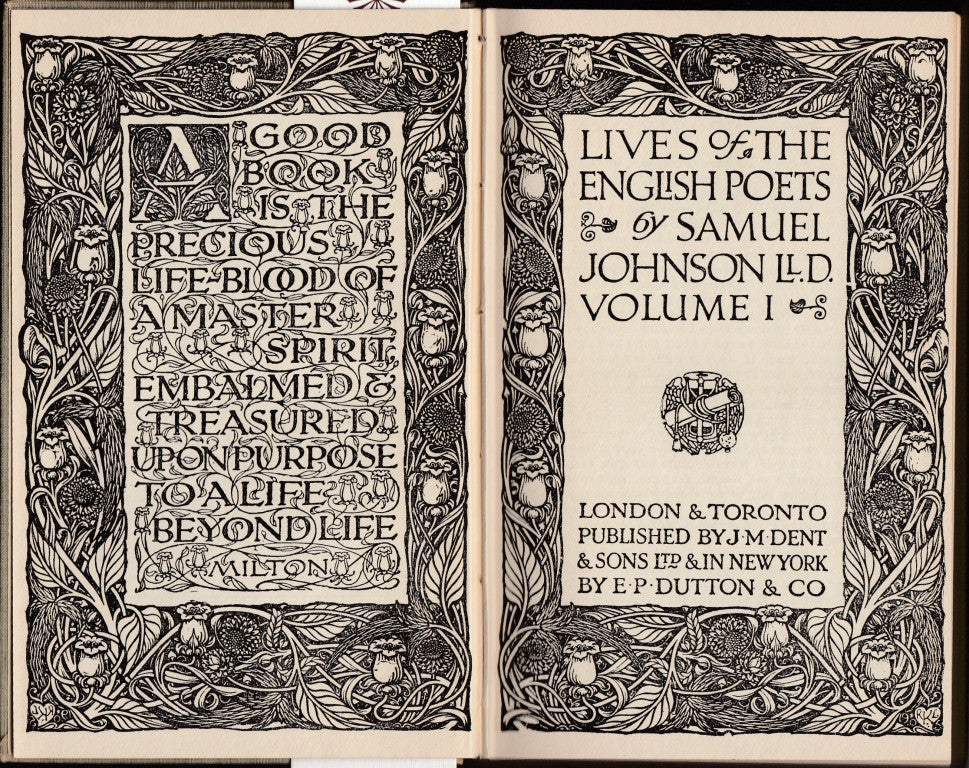 A GOOD
BOOK
IS THE
PRECIOUS
LIFE-BLOOD OF
A MASTER
SPIRIT,
EMBALMED &
TREASURED
UPON PURPOSE
TO A LIFE
BEYOND LIFE
MILTON
LIVES of THE
ENGLISH POETS
by SAMUEL
JOHNSON LL.D.
VOLUME I
LONDON & TORONTO
PUBLISHED BY J·M·DENT
& SONS LTD & IN NEW YORK
BY E·P·DUTTON & CO